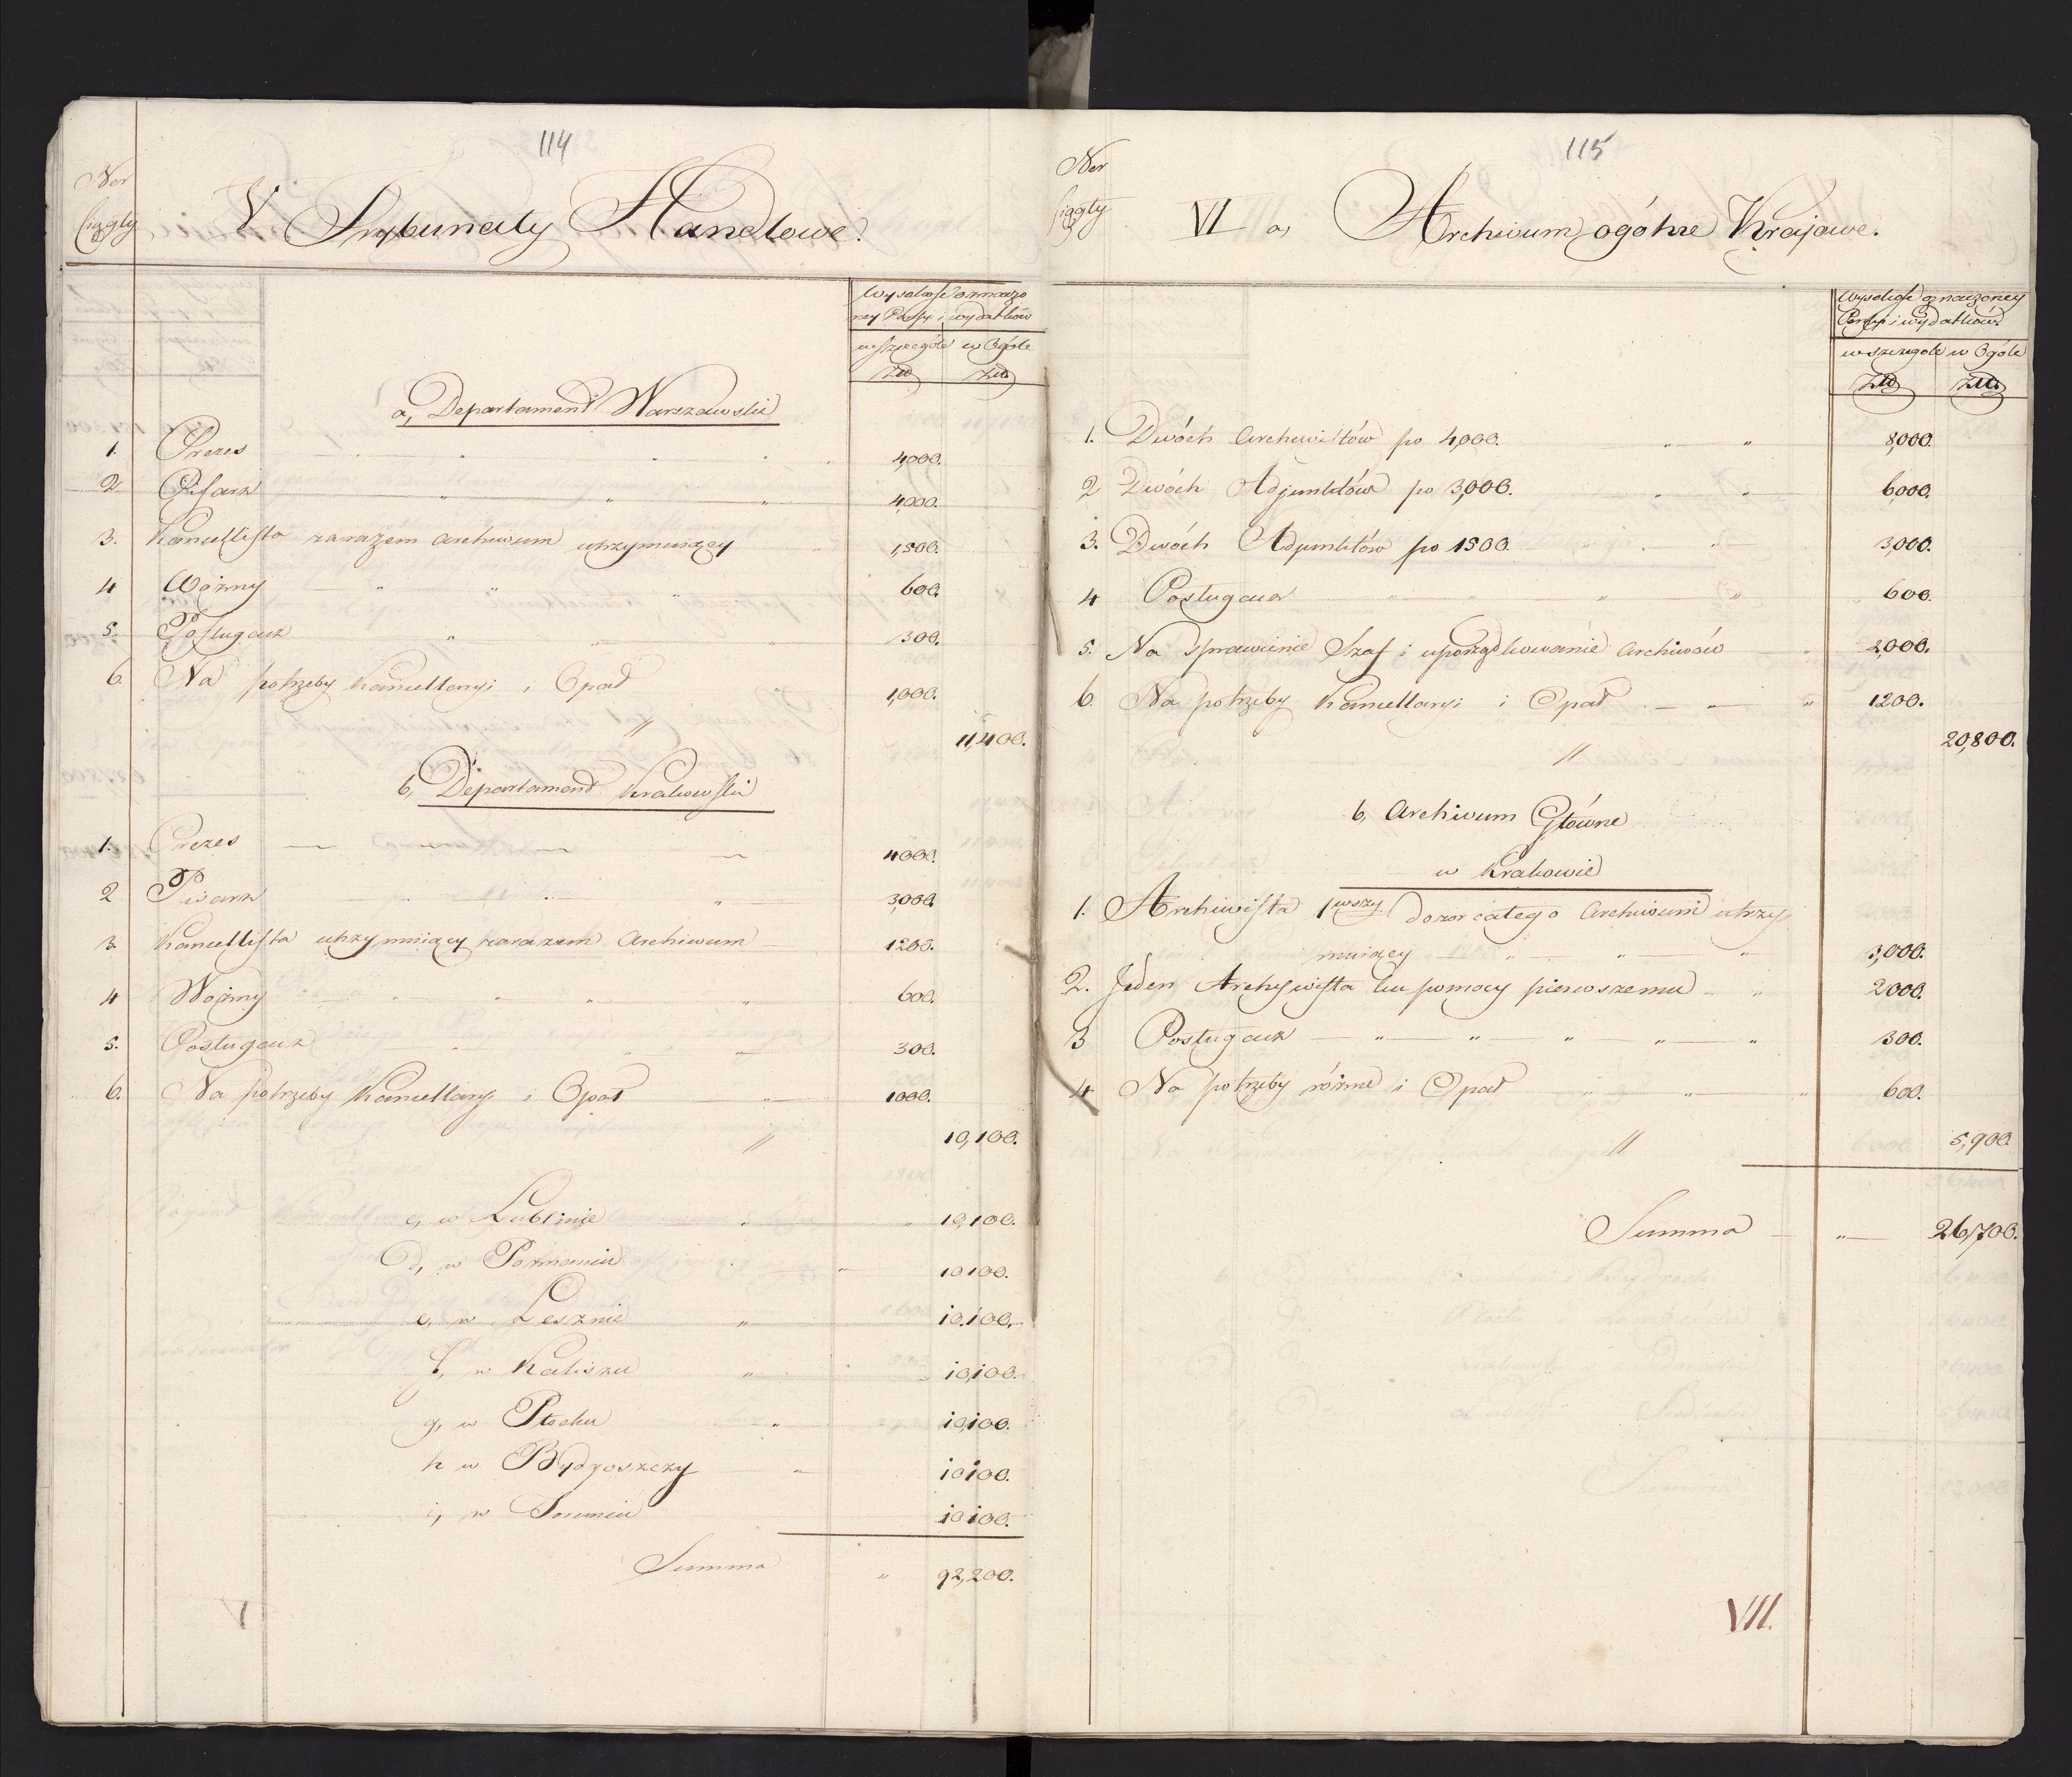 114
Ner
Ciągły
V Trybunały Handlowe.
Wysokość oznaczo
ney Płacy i wydatków
w szczególe w Ogóle
Złł Złł
a, Departament Warszawski
1. Prezes 4,000.
2 Pisarz 4,000.
3. Kancellista zarazem Archiwum utrzymuiący 1,500.
4 Woźny 600.
5. Posługacz 300.
6. Na potrzeby Kancellaryi i Opał 1,000.
// 11,400.
b, Departament Krakowski
1. Prezes 4000.
2 Pisarz 3,000.
3. Kancellista utrzymuiący zarazem Archiwum 1200.
4 Woźny 600.
5. Posługacz 300.
6. Na potrzeby Kancellaryi i Opał 1000.
// 10,100.
c, w Lublinie 10,100.
d, w Poznaniu 10100.
e, w Lesznie 10.100.
f, w Kaliszu 10,100.
g, w Płocku 10,100.
h w Bydgoszczy 10100.
i, w Toruniu 10100.
Summa 92,200.
115
Ner
Ciągły
VI a, Archivum ogólne Krajowe.
Wysokość oznaczoney
Pensyi i wydatków
w szczególe w Ogóle
Złł Złł
1. Dwóch Archiwistów po 4,000. 8,000.
2 Dwóch Adjunktów po 3,000. 6,000.
3. Dwóch Adjunktów po 1500. 3,000.
4 Posługacz 600.
5. Na sprawienie Szaf i uporządkowanie Archiwów 2,000.
6. Na potrzeby Kancellaryi i Opał 1200.
// 20,800.
b, Archivum Główne
w Krakowie
1. Archiwista 1wszy dozór całego Archivum utrzy-
muiący 3,000.
2. Jeden Archywista ku pomocy pierwszemu 2000.
3 Posługacz 300.
4 Na potrzeby różne i Opał 600.
// 5,900.
Summa 26,700.
VII.